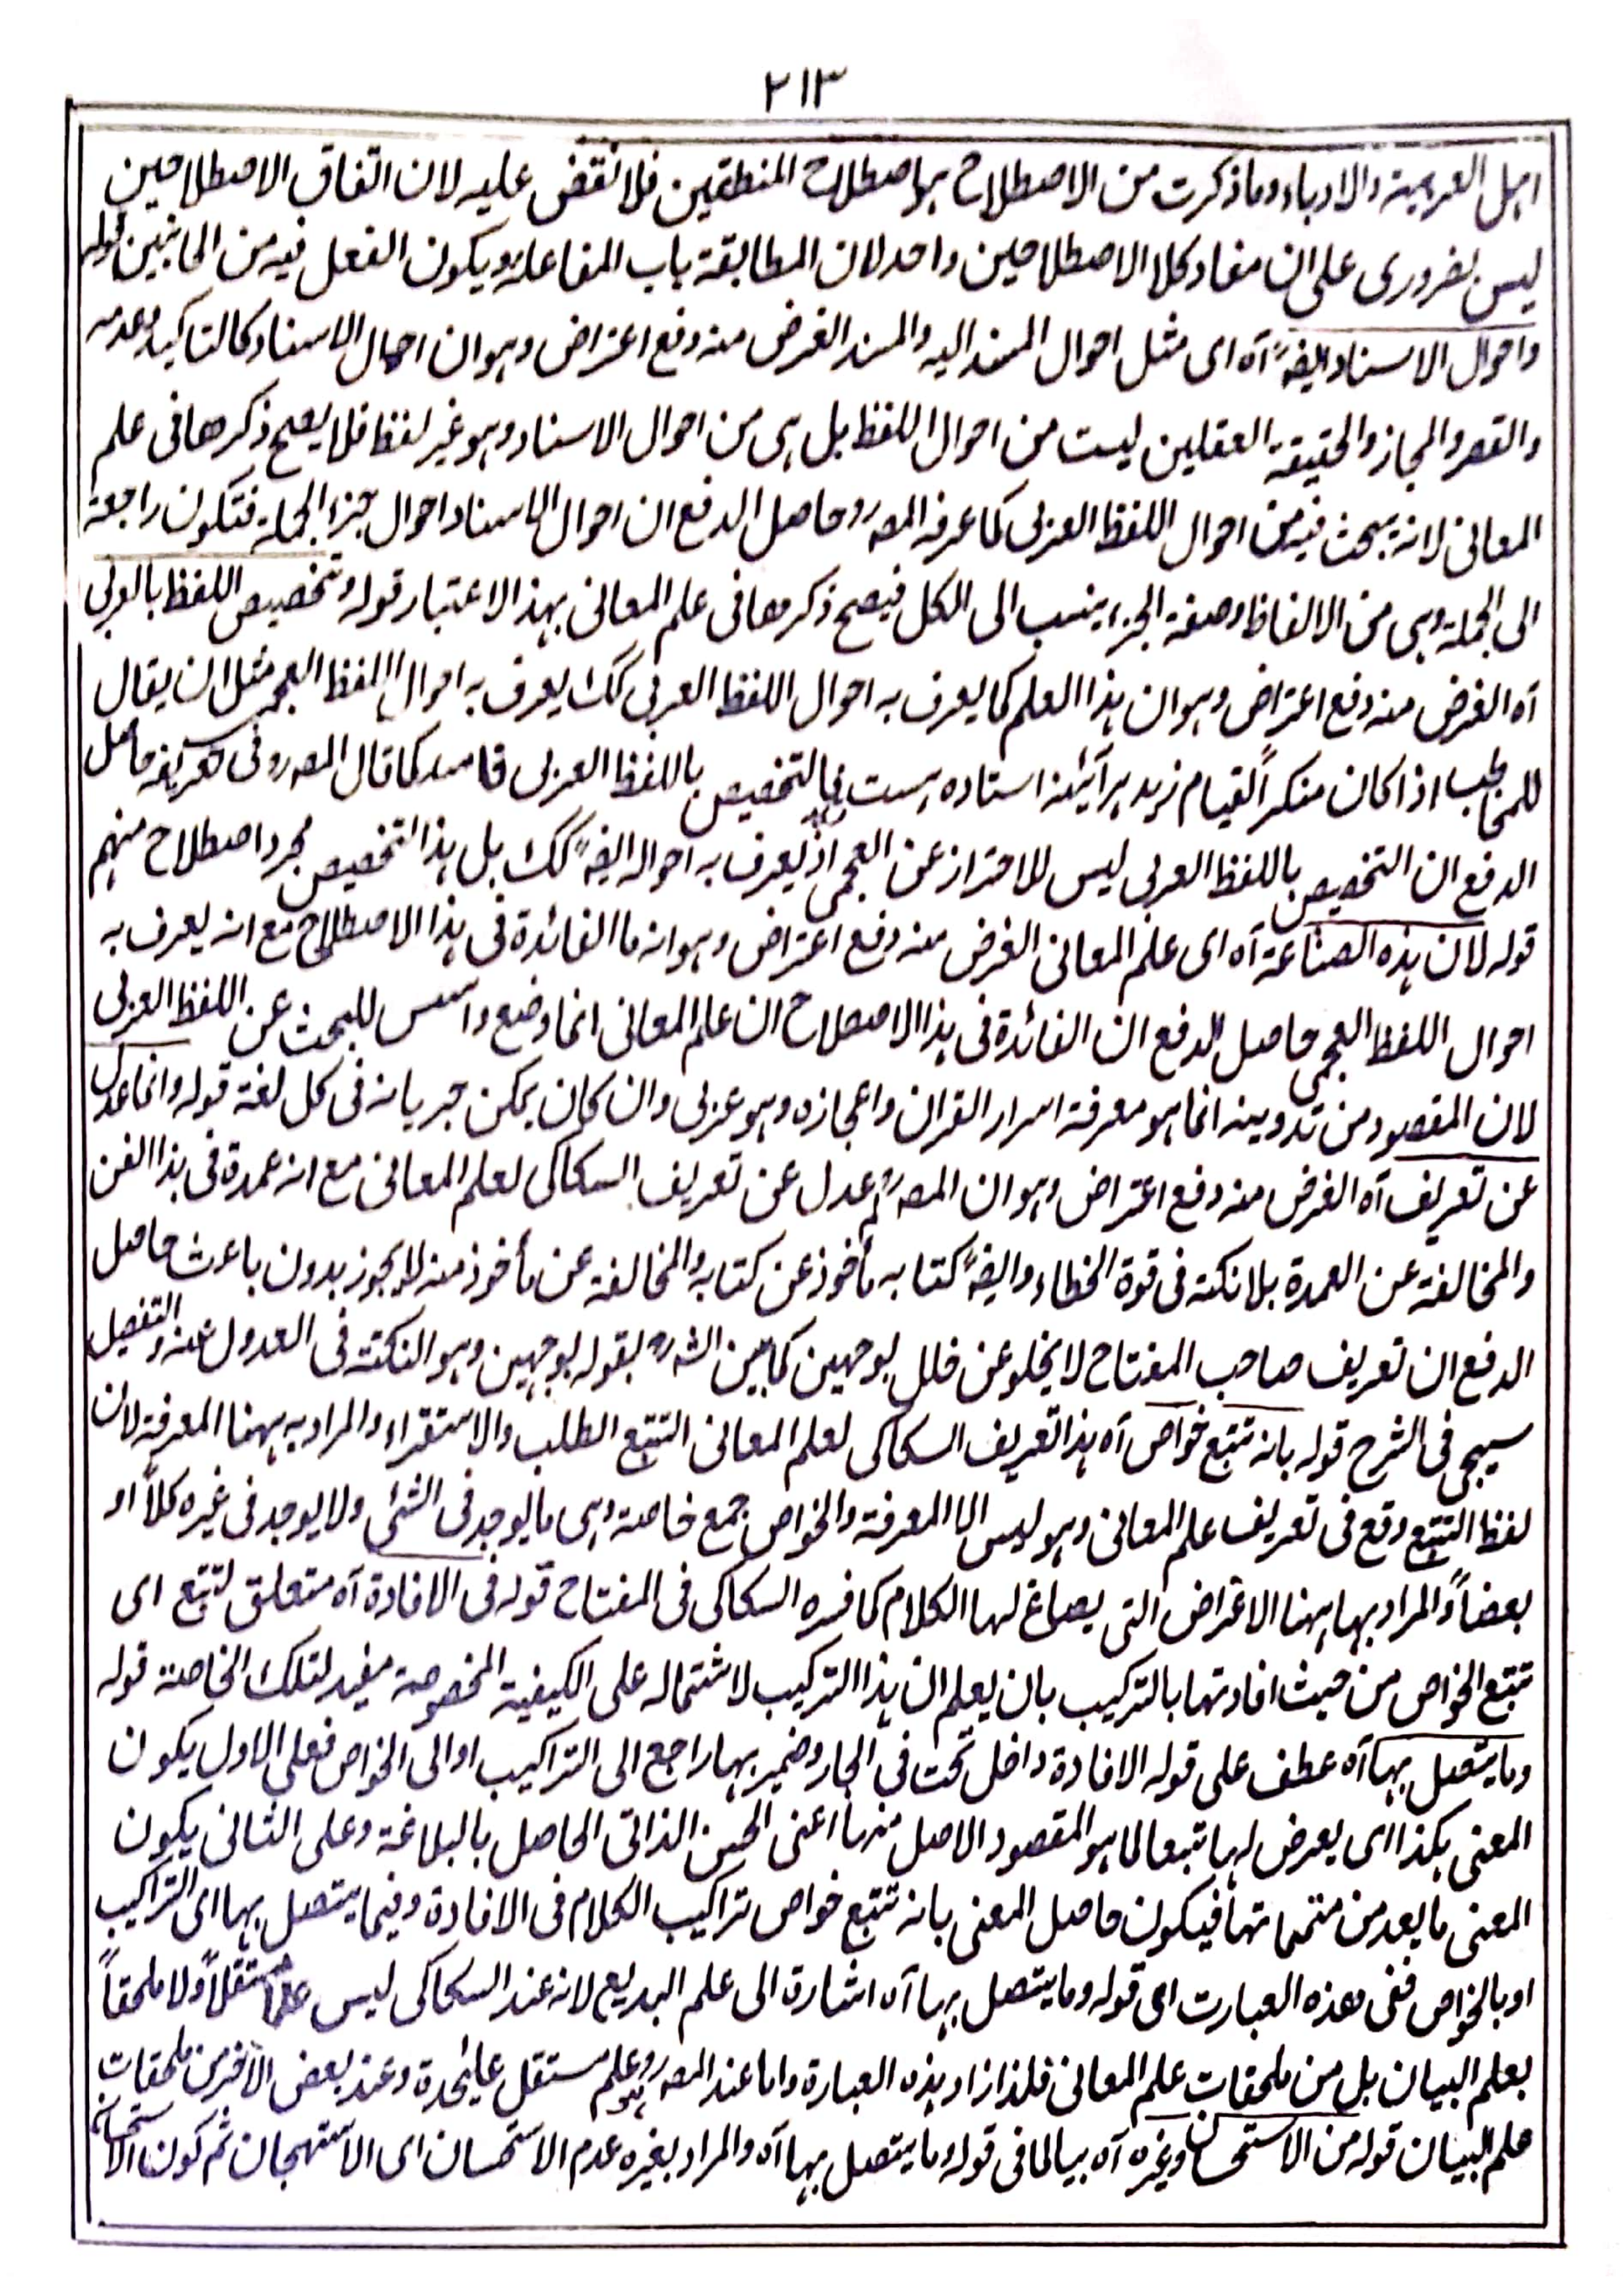 ٢١٣
اہل العربیۃ والادباء وما ذکرت من الاصطلاح ہو اصطلاح المنطقیین فلا نقض علیہ لان اتفاق الاصطلاحین
لیس بضروری علی ان مفاد کلا الاصطلاحین واحد لان المطابقۃ باب المفاعلۃ ویکون الفعل فیہ من الجانبین قولہ
واحوال الاسناد ایضہً آہ ای مثل احوال المسند الیہ والمسند الغرض منہ دفع اعتراض وہو ان احوال الاسناد کالتاکید وعدمہ
والقصر والمجاز والحقیقۃ العقلین لیست من احوال اللفظ بل ہی من احوال الاسناد وہو غیر لفظ فلا یصح ذکرھا فی علم
المعانی لانہ یبحث فیہ من احوال اللفظ العربی کما عرفہ المصہ رو حاصل الدفع ان احوال الاسناد احوال جزء الجملۃ فتکون راجعۃ
الی الجملۃ وہی من الالفاظ وصفۃ الجزء ینسب الی الکل فیصح ذکرھا فی علم المعانی بہذا الاعتبار قولہ وتخصیص اللفظ بالعربی
آہ الغرض منہ دفع اعتراض وہو ان ہذا العلم کما یعرف بہ احوال اللفظ العربی کک یعرف بہ احوال اللفظ العجمی مثل ان یقال
للمخاطب اذا کان منکراً لقیام زید ہر آئینہ استادہ ہست فالتخصیص باللفظ العربی فاسد کما قال المصہ رو فی تعریفہ حاصل
الدفع ان التخصیص باللفظ العربی لیس للاحتراز عن العجمی اذ یعرف بہ احوالہ ایضہً کک بل ہذا التخصیص مجرد اصطلاح منہم
قولہ لان ہذہ الصناعۃ آہ ای علم المعانی الغرض منہ دفع اعتراض وہو انہ ما الفائدۃ فی ہذا الاصطلاح مع انہ یعرف بہ
احوال اللفظ العجمی حاصل الدفع ان الفائدۃ فی ہذا الاصطلاح ان علم المعانی انما وضع واسس للبحث عن اللفظ العربی
لان المقصود من تدوینہ انما ہو معرفۃ اسرار القران واعجازہ وہو عربی وان کان یمکن جریانہ فی کل لغۃ قولہ وانما عدل
عن تعریف آہ الغرض منہ دفع اعتراض وہو ان المصہ لم عدل عن تعریف السکاکی لعلم المعانی مع انہ عمدۃ فی ہذا الفن
والمخالفۃ عن العمدۃ بلا نکتہ فی قوۃ الخطاء وایضہً کتابہ مأخوذ عن کتابہ والمخالفۃ عن مأخوذ منہ لا یجوز بدون باعث حاصل
الدفع ان تعریف صاحب المفتاح لا یخلو عن خلل بوجہین کما بین الشہ رہ بقولہ بوجہین وہو النکتۃ فی العدول عنہ والتفصیل
سیجی فی الشرح قولہ بانہ تتبع خواص آہ ہذا تعریف السکاکی لعلم المعانی التتبع الطلب والاستقراء والمراد بہ ہہنا المعرفۃ لان
لفظ التتبع وقع فی تعریف علم المعانی وہو لیس الا المعرفۃ والخواص جمع خاصۃ وہی ما یوجد فی الشئ ولا یوجد فی غیرہ کلاً او
بعضاً والمراد بہا ہہنا الاغراض التی یصاغ لہا الکلام کما فسرہ السکاکی فی المفتاح قولہ فی الافادۃ آہ متعلق لتتبع ای
تتبع الخواص من حیث افادتہا بالترکیب بان یعلم ان ہذا الترکیب لاشتمالہ علی الکیفیۃ المخصوصۃ مفید لتلک الخاصۃ قولہ
وما یتصل بہا آہ عطف علی قولہ الافادۃ داخل تحت فی الجار وضمیر بہا راجع الی التراکیب او الی الخواص فعلی الاول یکون
المعنی ہکذا ای یعرض لہا تبعا لما ہو المقصود الاصل منہا اعنی الحسن الذاتی الحاصل بالبلاغۃ وعلی الثانی یکون
المعنی ما یعد من متمماتہا فیکون حاصل المعنی بانہ تتبع خواص تراکیب الکلام فی الافادۃ وفیما یتصل بہا ای التراکیب
او بالخواص ففی ھذہ العبارت ای قولہ وما یتصل بہا آہ اشارۃ الی علم البدیع لانہ عند السکاکی لیس علماً مستقلاً ولا ملحقاً
بعلم البیان بل من ملحقات علم المعانی فلذا زاد ہذہ العبارۃ واما عند المصہ رو ہو علم مستقل علیٰحدۃ وعند بعض الاٰخر من ملحقات
علم البیان قولہ من الاستحسان وغیرہ آہ بیا لما فی قولہ وما یتصل بہا آہ والمراد بغیرہ عدم الاستحسان ای الاستہجان ثم کون